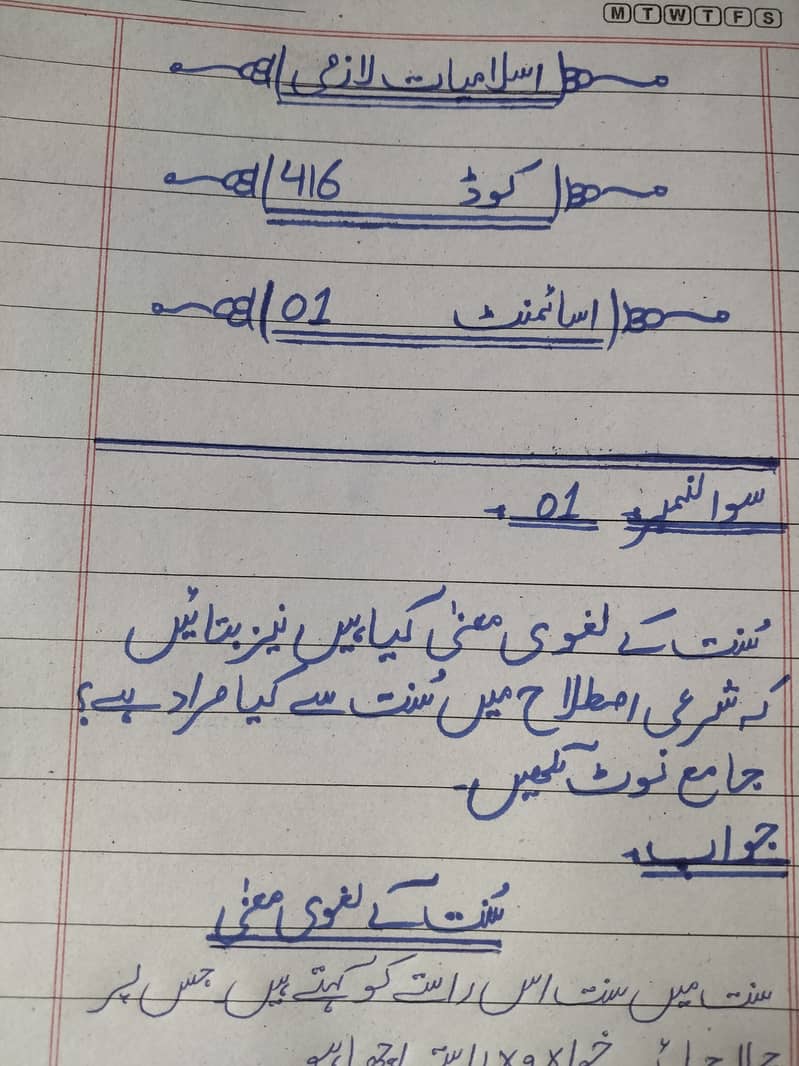 M T W T F S
اسلامیات لازمی
کوڈ 416
اسائمنٹ 01
سوال نمبر 01
سُنت کے لغوی معنیٰ کیا ہیں نیز بتائیں
کہ شرعی اصطلاح میں سُنت سے کیا مراد ہے؟
جامع نوٹ لکھیں۔
جواب
سُنت کے لغوی معنیٰ
سنت میں سنت اس راستے کو کہتے ہیں جس پر
چلا جائے خواہ وہ راستہ اچھا ہو